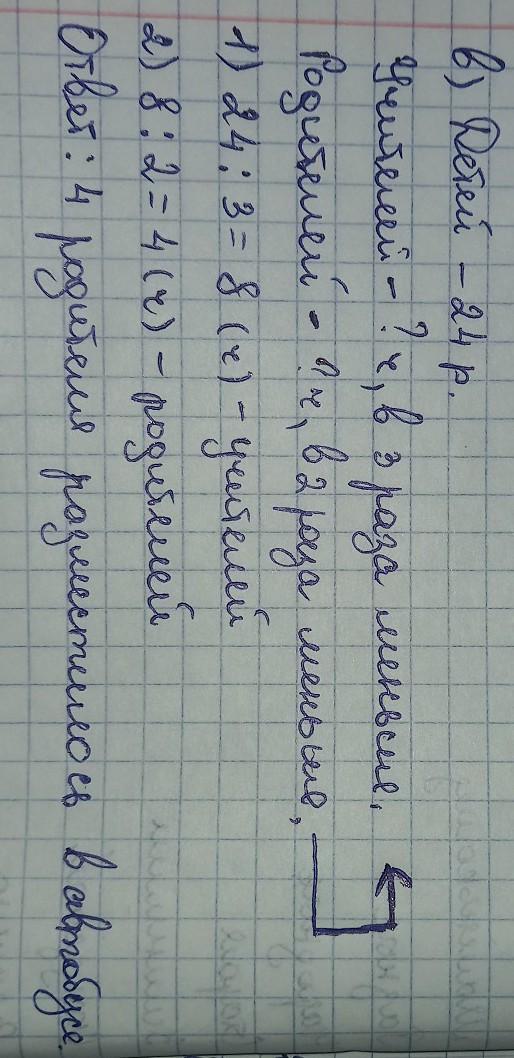 в) Детей – 24 р.
Учителей – ? ч, в 3 раза меньше,
Родителей – ? ч, в 2 раза меньше,
1) 24 : 3 = 8 (ч) – учителей
2) 8 : 2 = 4 (ч) – родителей
Ответ : 4 родителя разместилось в автобусе.